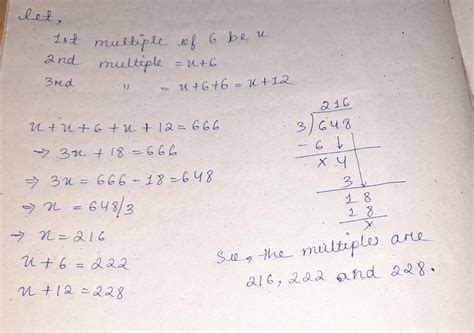 let,
1st multiple of 6 be u
2nd multiple = u+6
3rd " = u+6+6 = u+12
u+u+6+u+12=666
⇒ 3u+18=666
⇒ 3u=666-18=648
⇒ u = 648/3
⇒ u=216
u+6=222
u+12=228
216
3)648
-6↓
x4
3
18
18
x
So, the multiples are
216, 222 and 228.